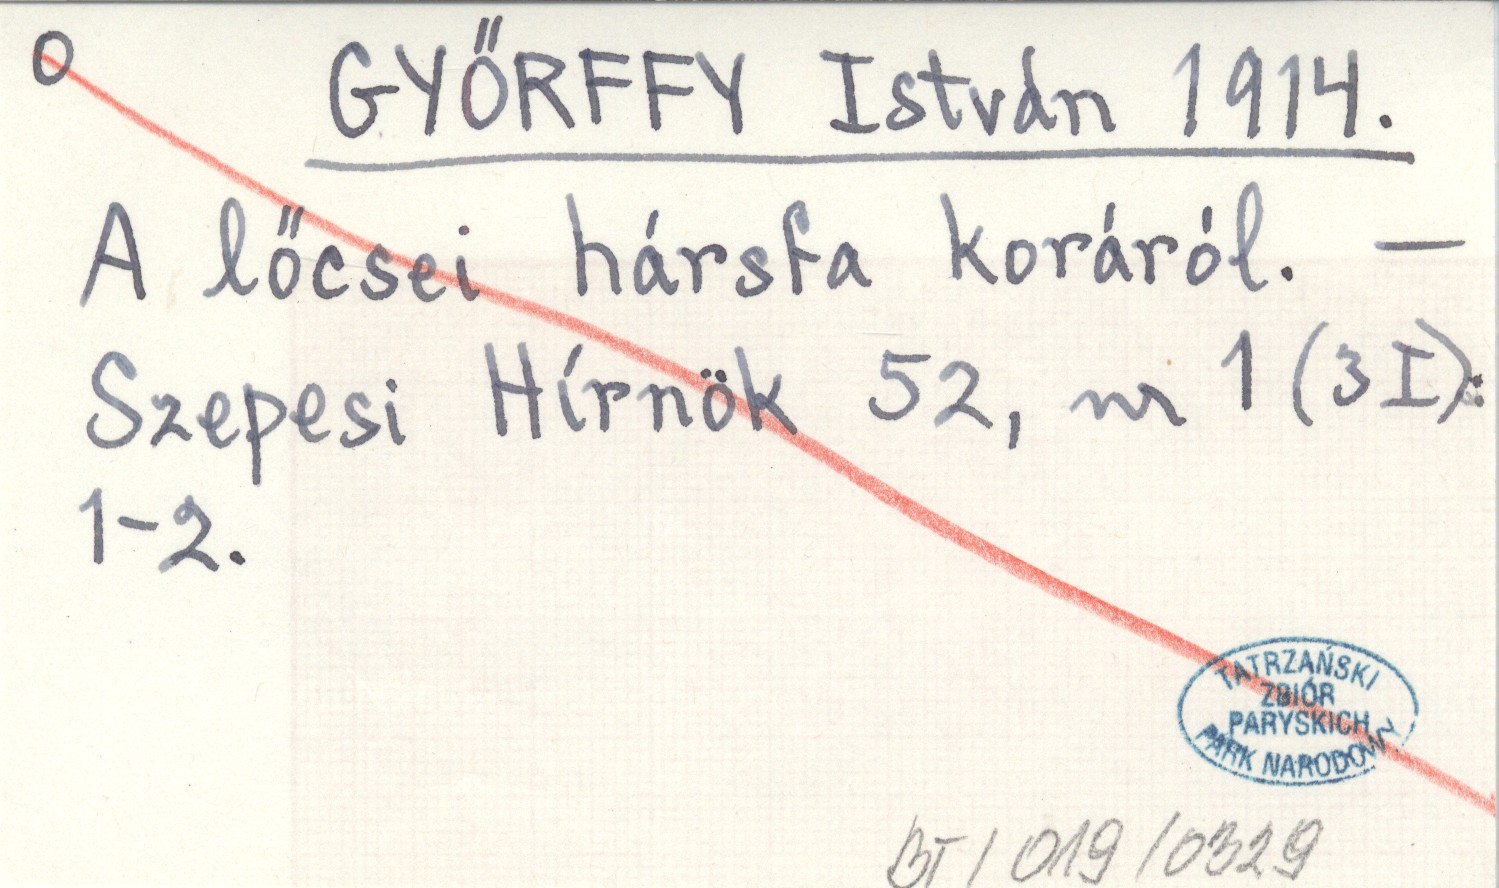 O
GYŐRFFY István 1914.
A lőcsei hársfa koráról. —
Szepesi Hírnök 52, nr 1 (3 I):
1-2.
TATRZAŃSKI
ZBIÓR
PARYSKICH
PARK NARODOWY
BT / 019 / 0329